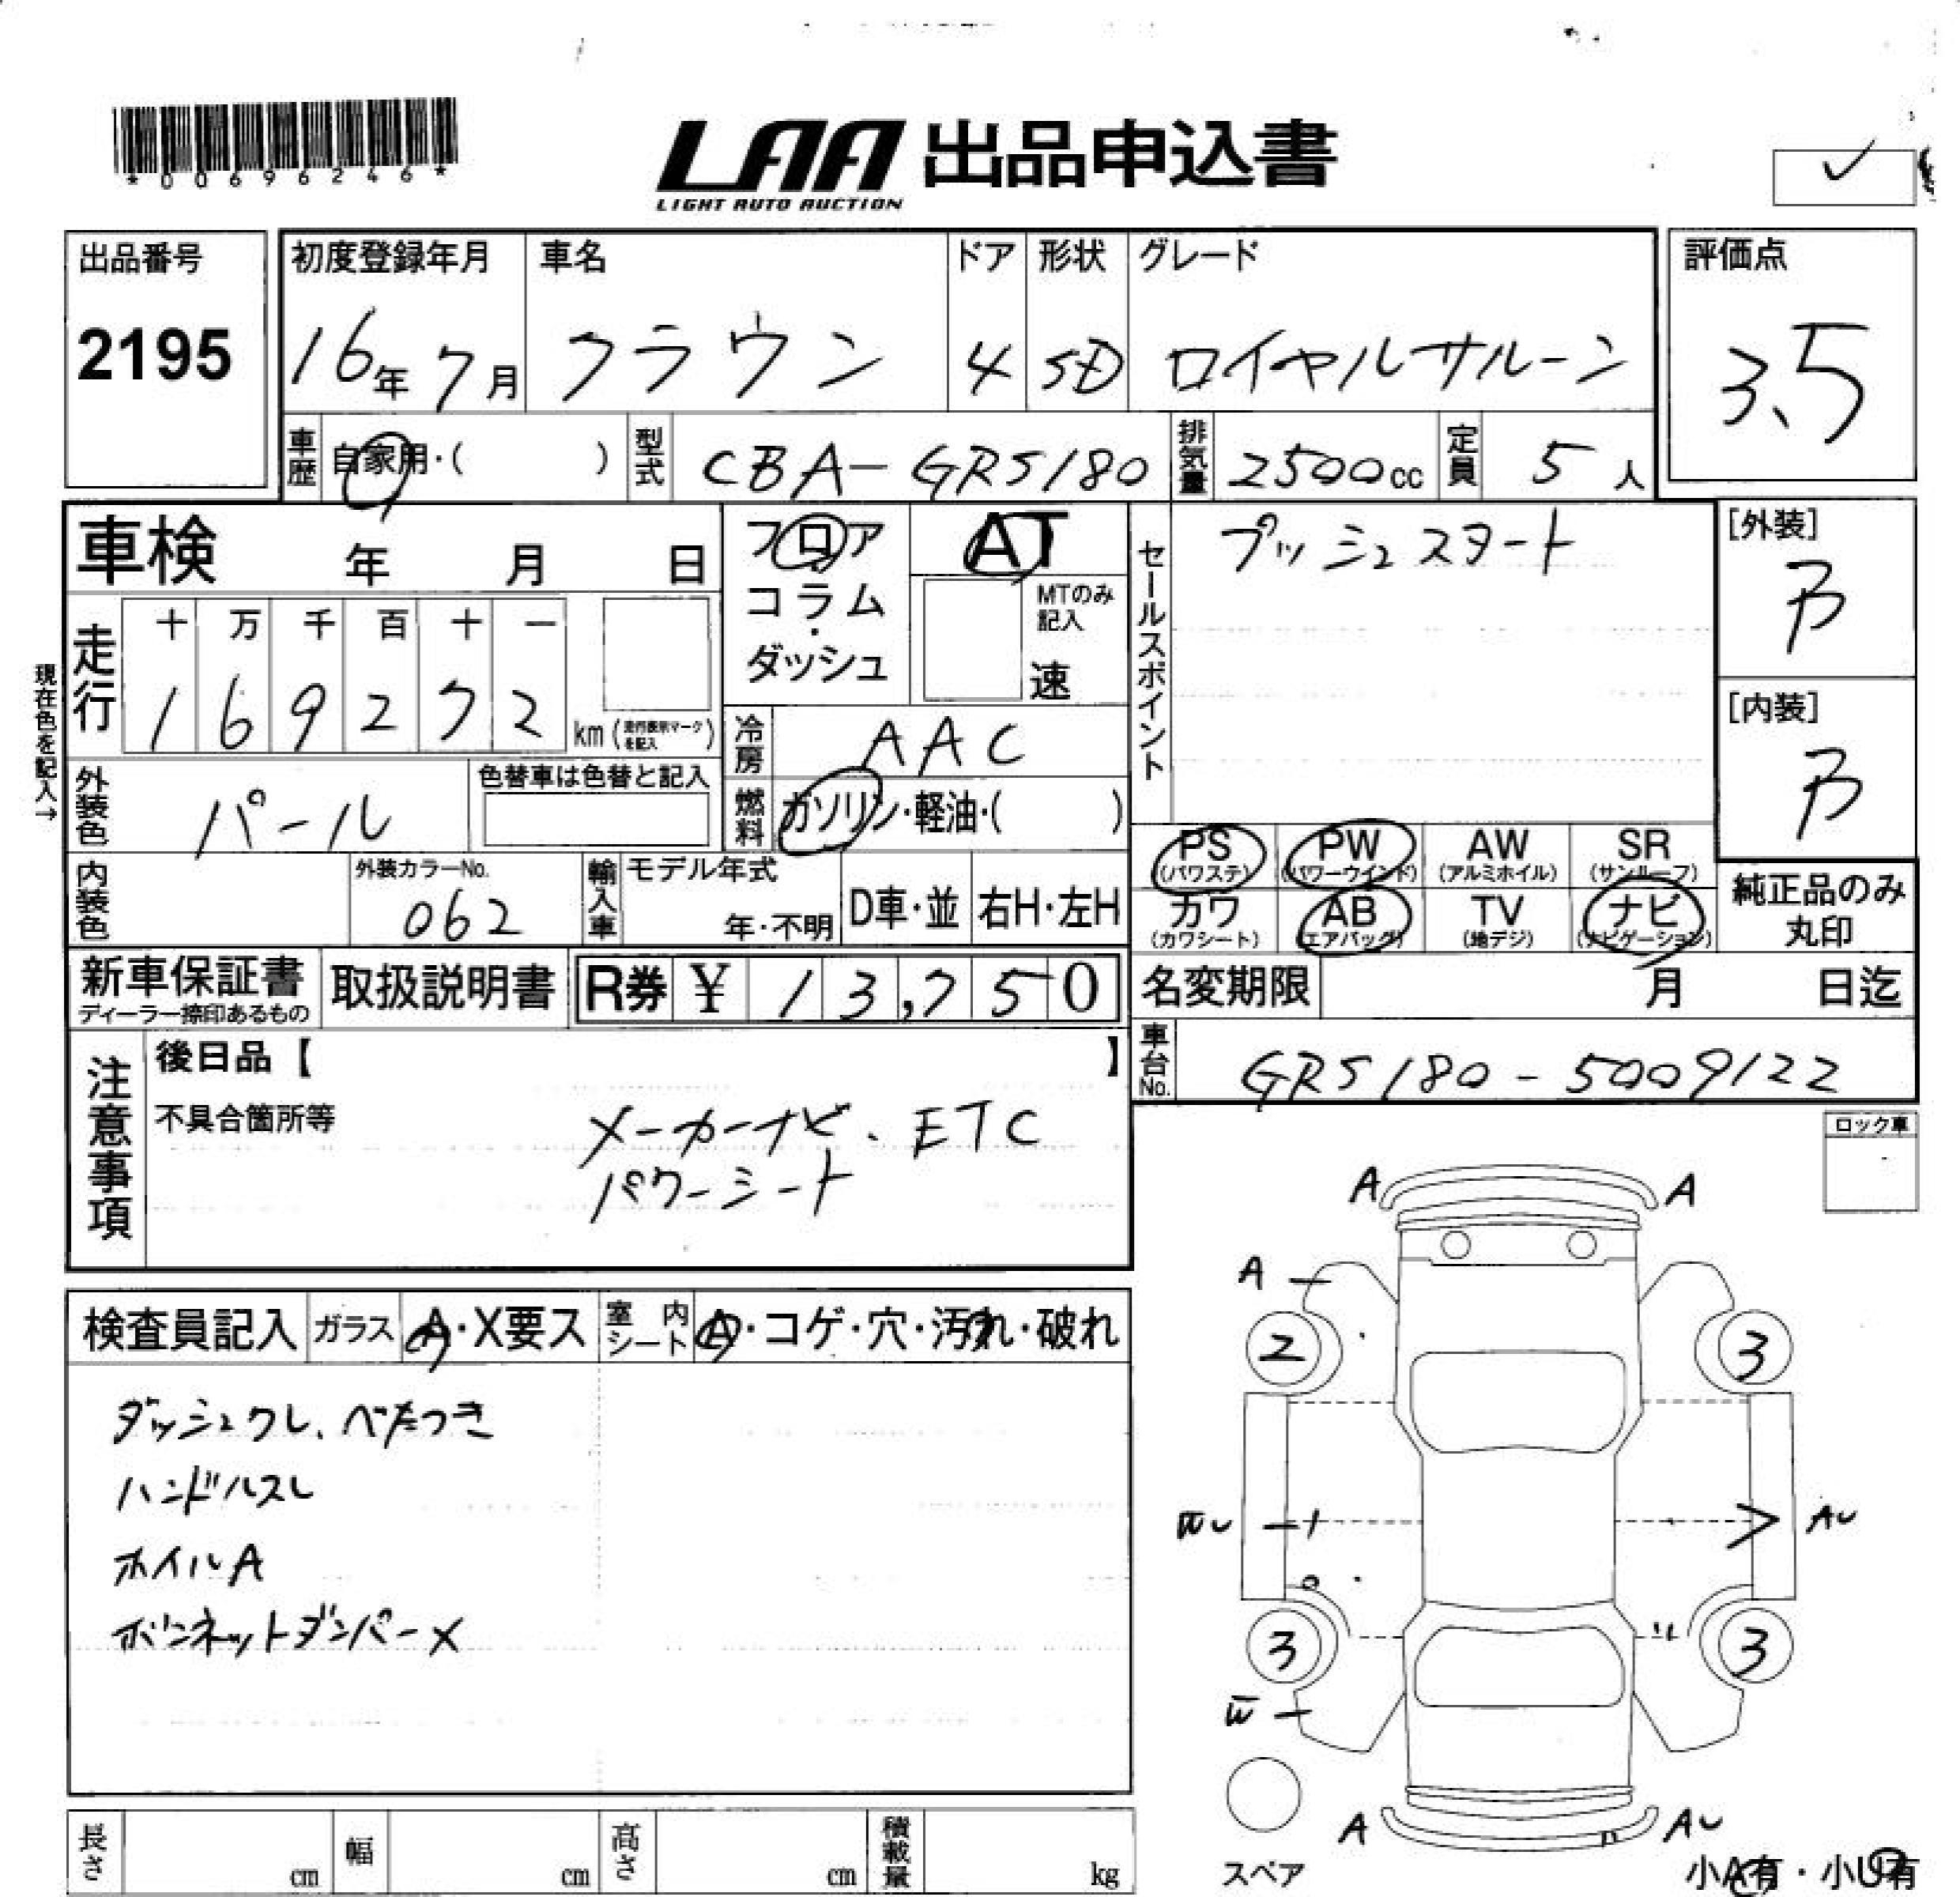 *00696246*
LAA 出品申込書
LIGHT AUTO AUCTION
出品番号
2195
初度登録年月
16年7月
車名
クラウン
ドア
4
形状
SD
グレード
ロイヤルサルーン
評価点
3.5
車歴 自家用・( )
型式 CBA-GRS180
排気量 2500cc
定員 5人
車検 年 月 日
フロア
コラム
・
ダッシュ
AT
MTのみ記入
速
セールスポイント
プッシュスタート
[外装]
B
[内装]
B
現在色を記入→
走行
十 万 千 百 十 一
1 6 9 2 7 2 km (走行表示マークを記入)
冷房 AAC
燃料 ガソリン・軽油・( )
外装色 パール
色替車は色替と記入
内装色
外装カラーNo.
062
輸入車
モデル年式
年・不明
D車・並
右H・左H
PS (パワステ)
PW (パワーウインド)
AW (アルミホイル)
SR (サンルーフ)
カワ (カワシート)
AB (エアバッグ)
TV (地デジ)
ナビ (ナビゲーション)
純正品のみ
丸印
新車保証書
ディーラー捺印あるもの
取扱説明書
R券 ¥ 13,750
名変期限 月 日迄
車台No. GRS180-5009122
注意事項
後日品【 】
不具合箇所等
メーカーナビ、ETC
パワーシート
ロック車
検査員記入
ガラス A・X要ス
室内シート A・コゲ・穴・汚れ・破れ
ダッシュクレ、べたつき
ハンドルスレ
ホイルA
ボンネットダンパー×
A A
A
2 3
AU
3 3
A AU
スペア
小A有・小U有
長さ cm
幅 cm
高さ cm
積載量 kg